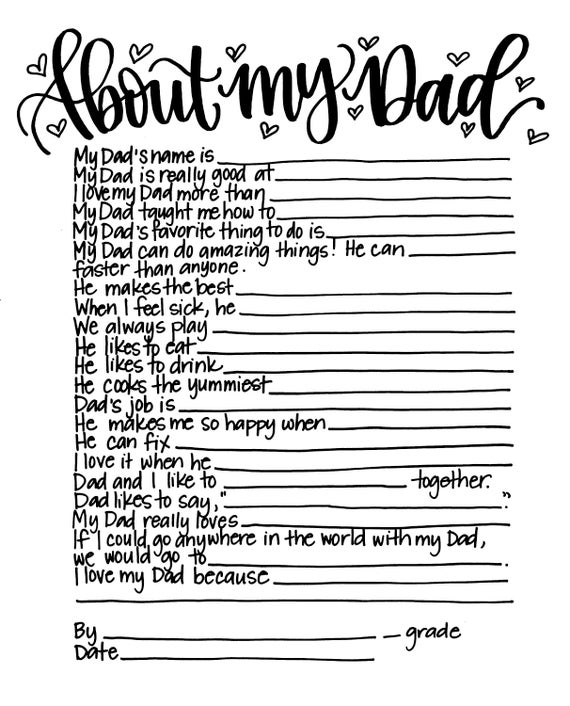 About my Dad
My Dad's name is
My Dad is really good at
I love my Dad more than
My Dad taught me how to
My Dad's favorite thing to do is
My Dad can do amazing things! He can
faster than anyone.
He makes the best
When I feel sick, he
We always play
He likes to eat
He likes to drink
He cooks the yummiest
Dad's job is
He makes me so happy when
He can fix
I love it when he
Dad and I like to ____ together.
Dad likes to say, "____."
My Dad really loves
If I could go anywhere in the world with my Dad,
we would go to ____.
I love my Dad because
By ____ __ grade
Date